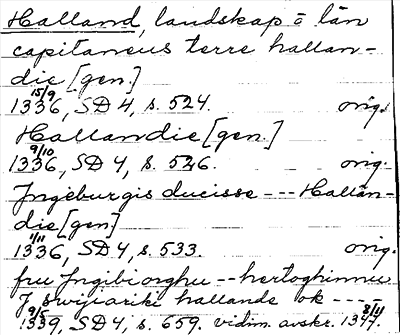 Halland, landskap o län
capitaneus terre hallan-
die [gen.]
15/9 1336, SD 4, s. 524. orig.
Hallandie [gen.]
9/10 1336, SD 4, s. 526. orig.
Ingeburgis ducisse --- Hallan-
die [gen]
1/11 1336, SD 4, s. 533. orig.
fru Ingibiorghu -- hertoghinnu
J swijiariki hallande ok ----
9/5 1339, SD 4, s. 659. vidim. avskr. 1347.